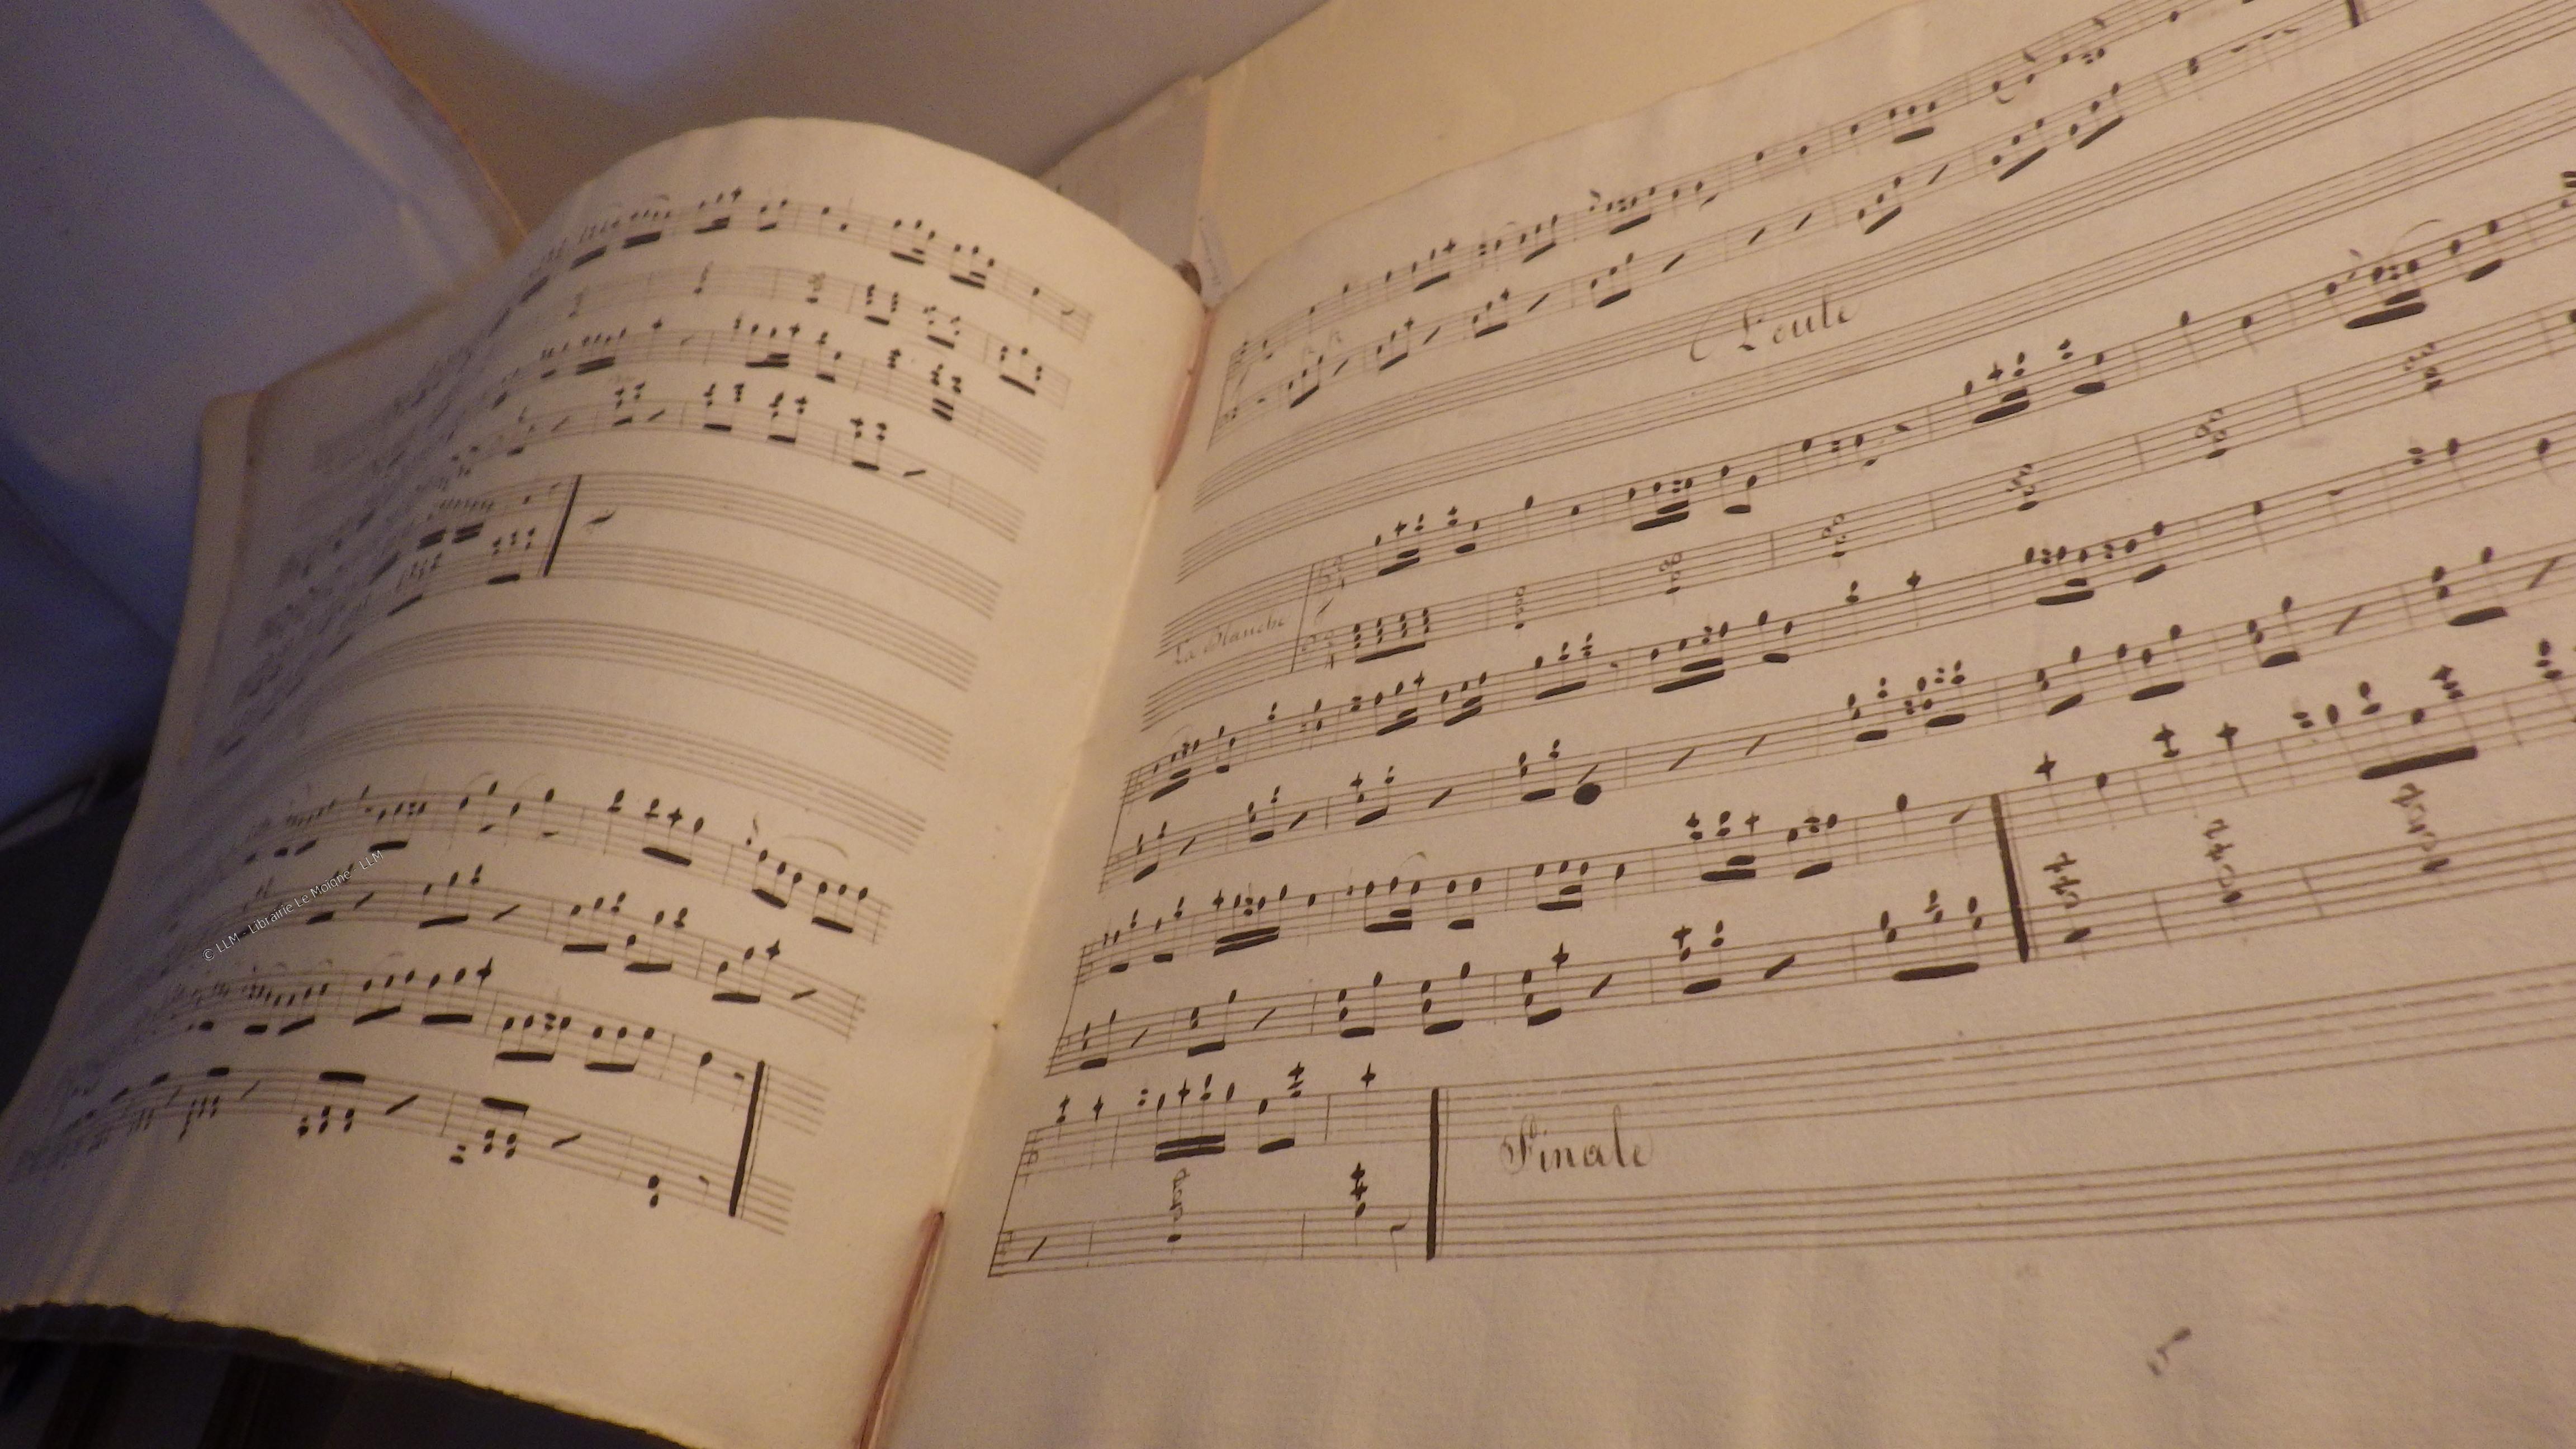 Poule
La Blanche
Finale
5
© LLM - Librairie Le Moigne - LLM